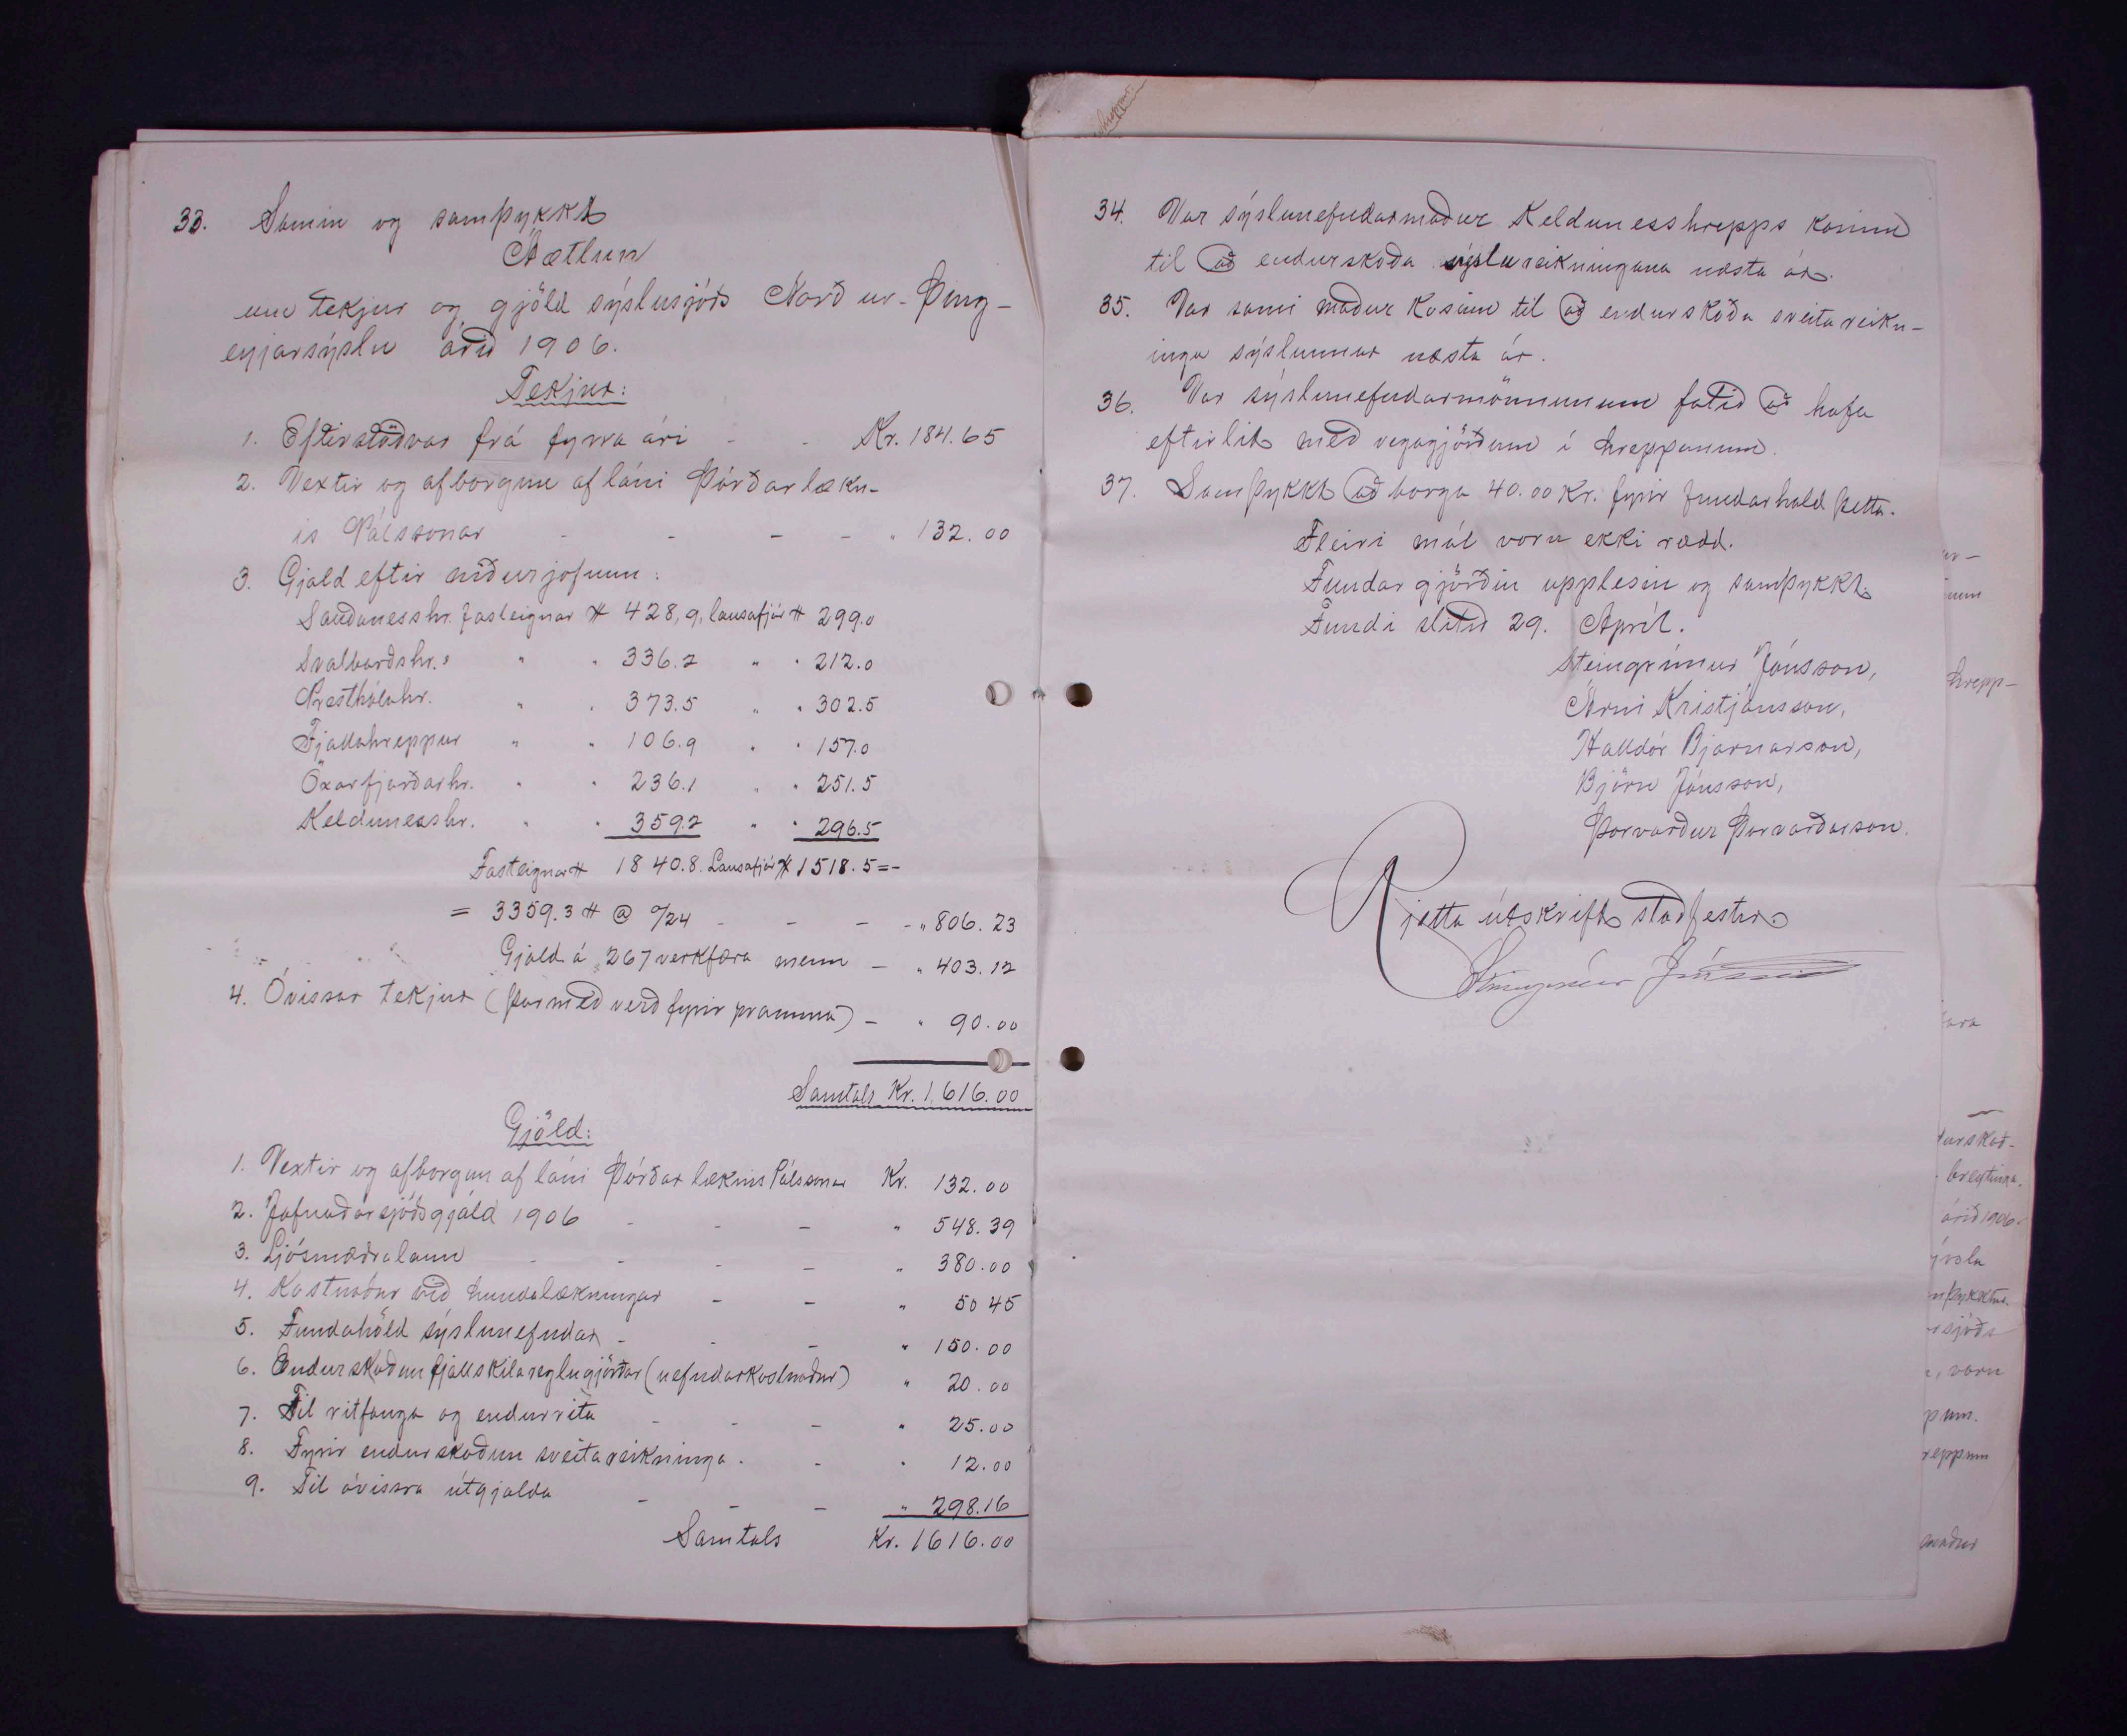 33. Samin og samþykkt
Áætlun
um tekjur og gjöld sýslusjóðs Norður-Þing-
eyjarsýslu árið 1906.
Tekjur:
1. Eftirstöðvar frá fyrra ári - - Kr. 184.65
2. Vextir og afborgun af láni Þórðar lækn-
is Pálssonar - - - - " 132.00
3. Gjald eftir niðurjöfnun:
Sauðanesshr. fasteignar # 428,9, lausafjár # 299.0
Svalbarðshr. " " " 336.2 " " 212.0
Presthólahr. " " 373.5 " " 302.5
Fjallahreppur " " 106.9 " " 157.0
Öxarfjarðarhr. " " 236.1 " " 251.5
Keldunesshr. " " 359.2 " " 296.5
Fasteignar # 1840.8. Lausafjár # 1518.5 = -
= 3359.3 # @ 0/24 - - - - " 806.23
Gjald á 267 verkfæra menn - " 403.12
4. Óvissar tekjur (þar með verð fyrir pramma) - " 90.00
Samtals Kr. 1,616.00
Gjöld:
1. Vextir og afborgun af láni Þórðar læknis Pálssonar Kr. 132.00
2. Jafnaðarsjóðsgjald 1906 - - - " 548.39
3. Ljósmæðralaun - - - - " 380.00
4. Kostnaður við hundalækningar - - " 50 45
5. Fundahöld sýslunefndar - - - " 150.00
6. Endurskoðun fjallskilareglugjörðar (nefndarkostnaður) " 20.00
7. Til ritfanga og endurrita - - - " 25.00
8. Fyrir endurskoðun sveitareikninga. - " 12.00
9. Til óvissra útgjalda - - - " 298.16
Samtals Kr. 1616.00
34. Var sýslunefndarmaður Keldunesshrepps kosinn
til að endurskoða sýslureikningana næsta ár.
35. Var sami maður kosinn til að endurskoða sveitareikn-
inga sýslunnar næsta ár.
36. Var sýslunefndarmönnunum falið að hafa
eftirlit með vegagjörðum í hreppunum.
37. Samþykkt að borga 40.00 Kr. fyrir fundarhald þetta.
Fleiri mál voru ekki rædd.
Fundargjörðin upplesin og samþykkt.
Fundi slitið 29. Apríl.
Steingrímur Jónsson,
Árni Kristjánsson,
Halldór Bjarnarson,
Björn Jónsson,
Þorvarður Þorvarðarson.
Rjetta útskrift staðfestir
Steingrímur Jónsson
hrepp-
urskoð-
breytinga.
árið 1906.
ýsla
rsjóðs
, voru
reppum
maður